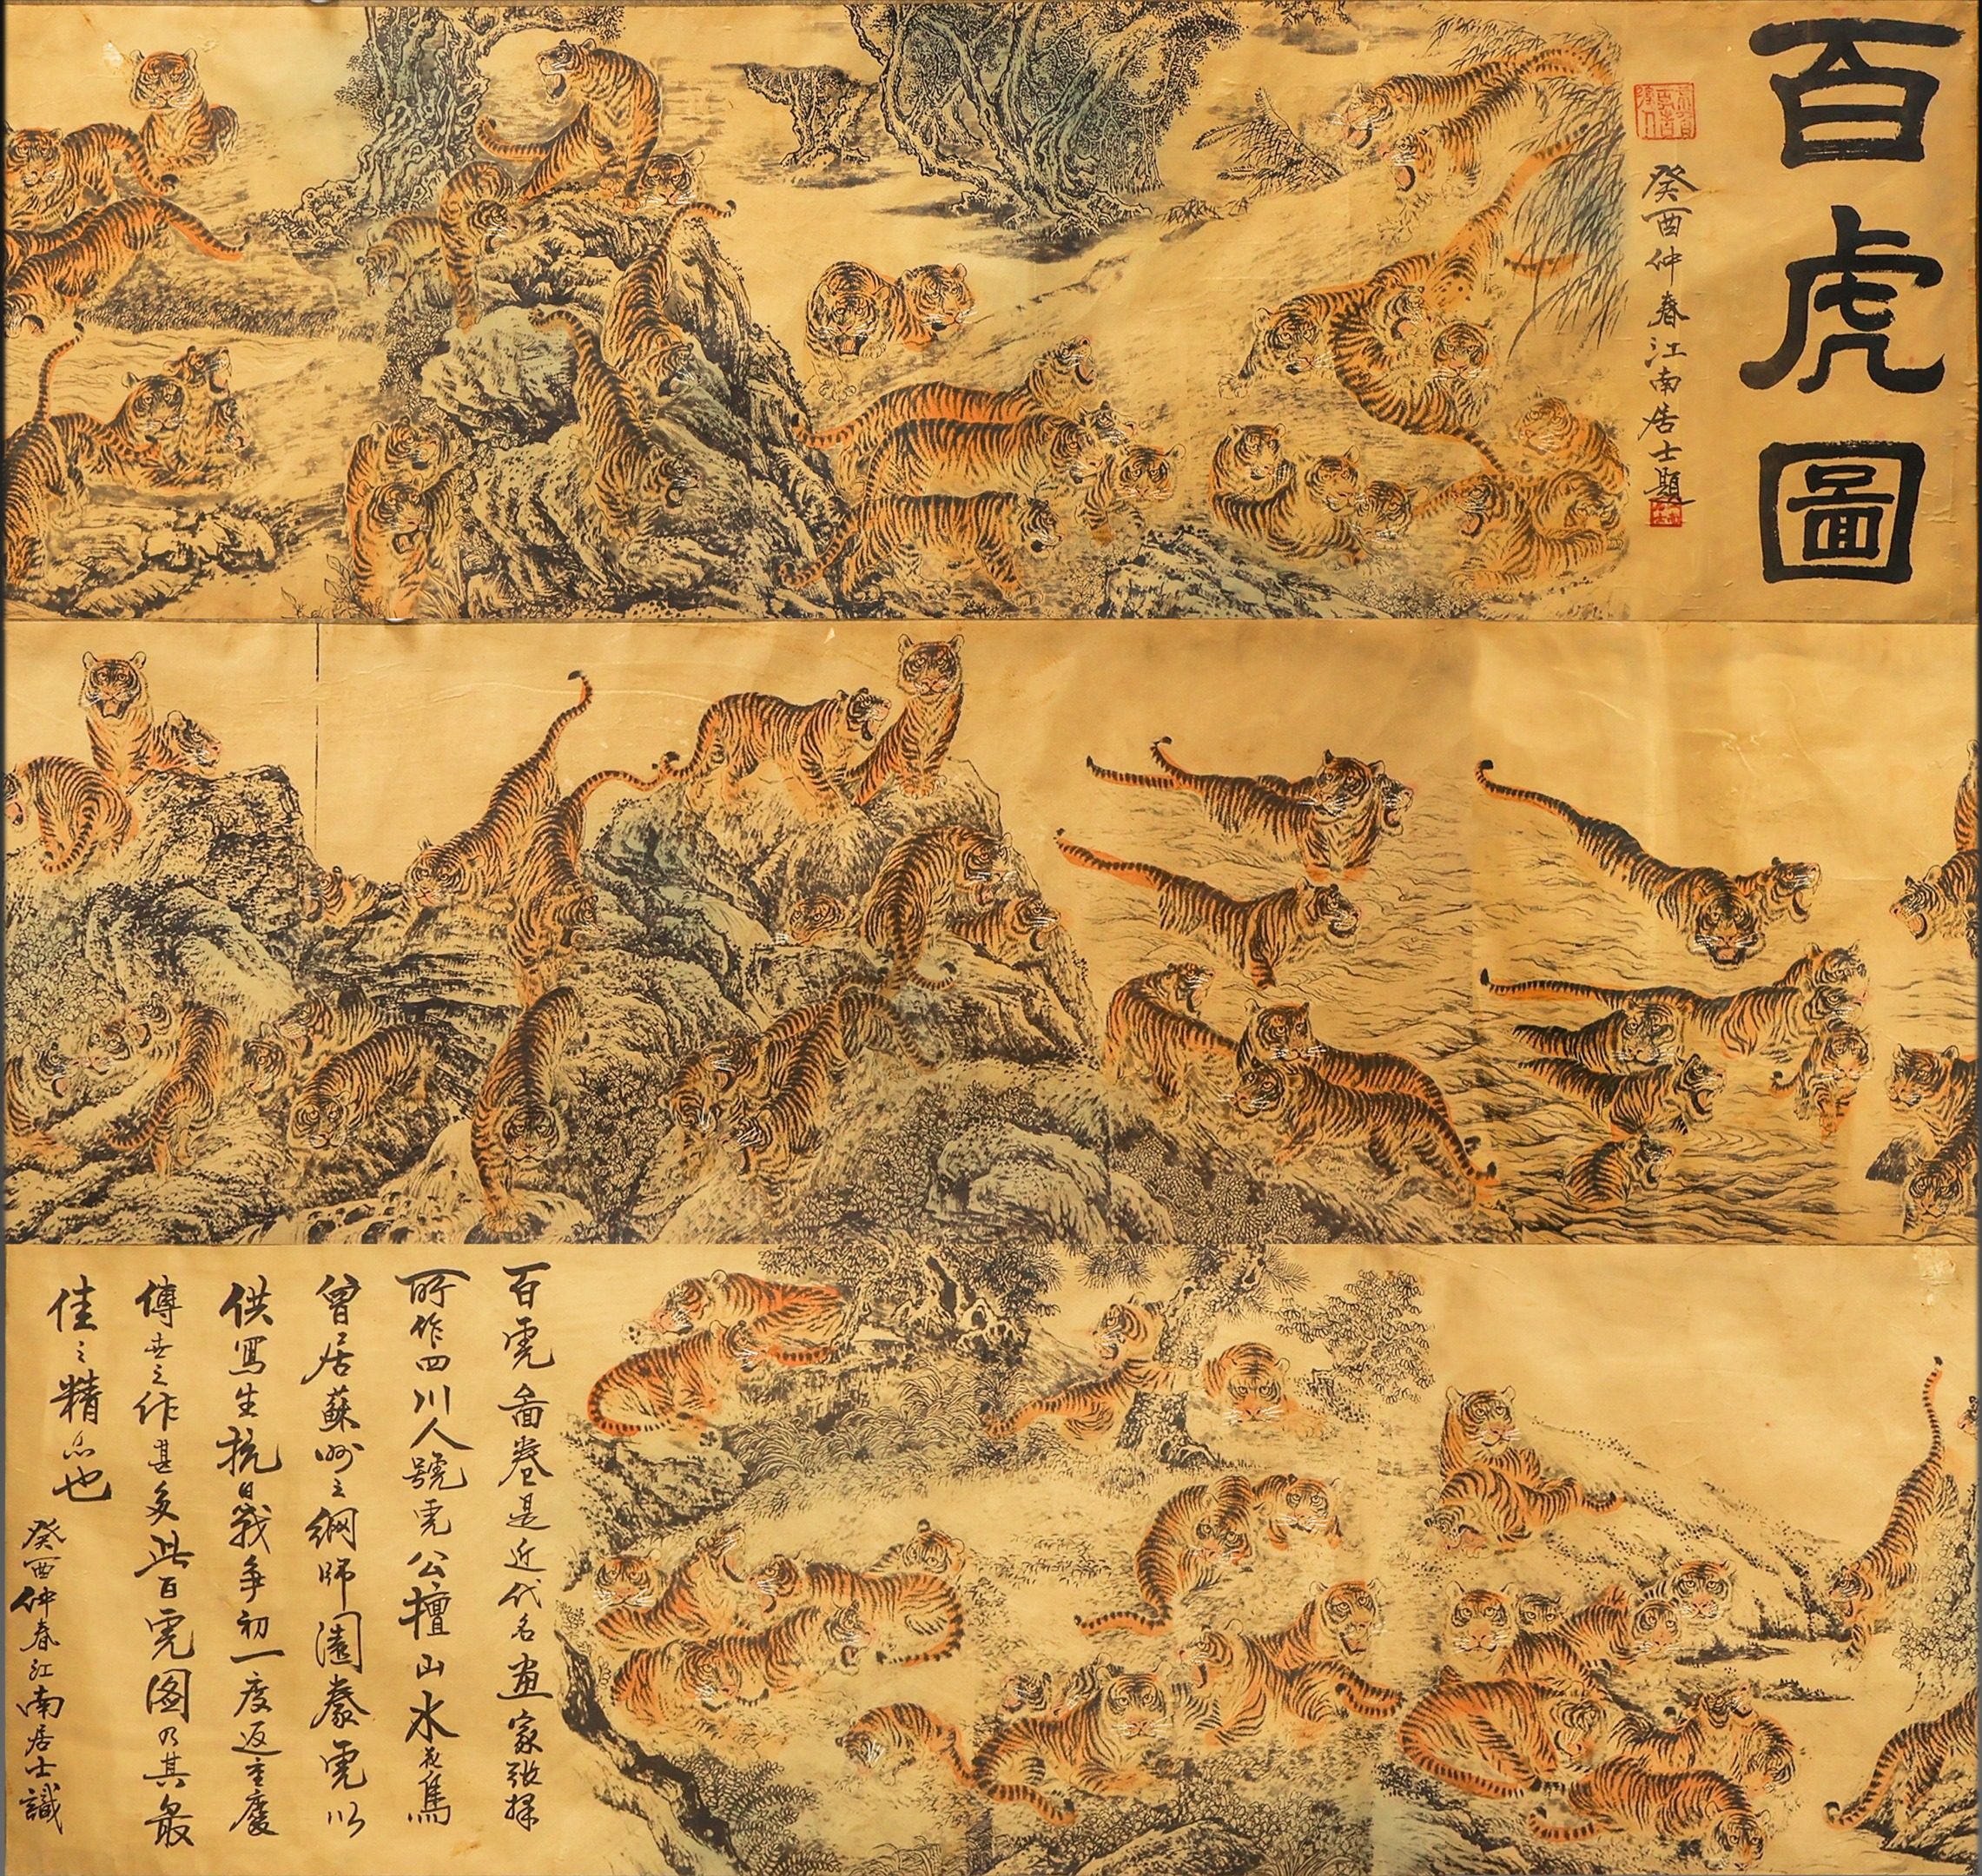 百虎圖
癸酉仲春江南居士題
百虎畵卷是近代名画家張擇
所作四川人號虎公擅山水花鳥
曾居蘇州之網師園豢虎以
供寫生抗日戰爭初一度返重慶
傳世之作甚多此百虎图乃其最
佳之精品也
癸酉仲春江南居士識